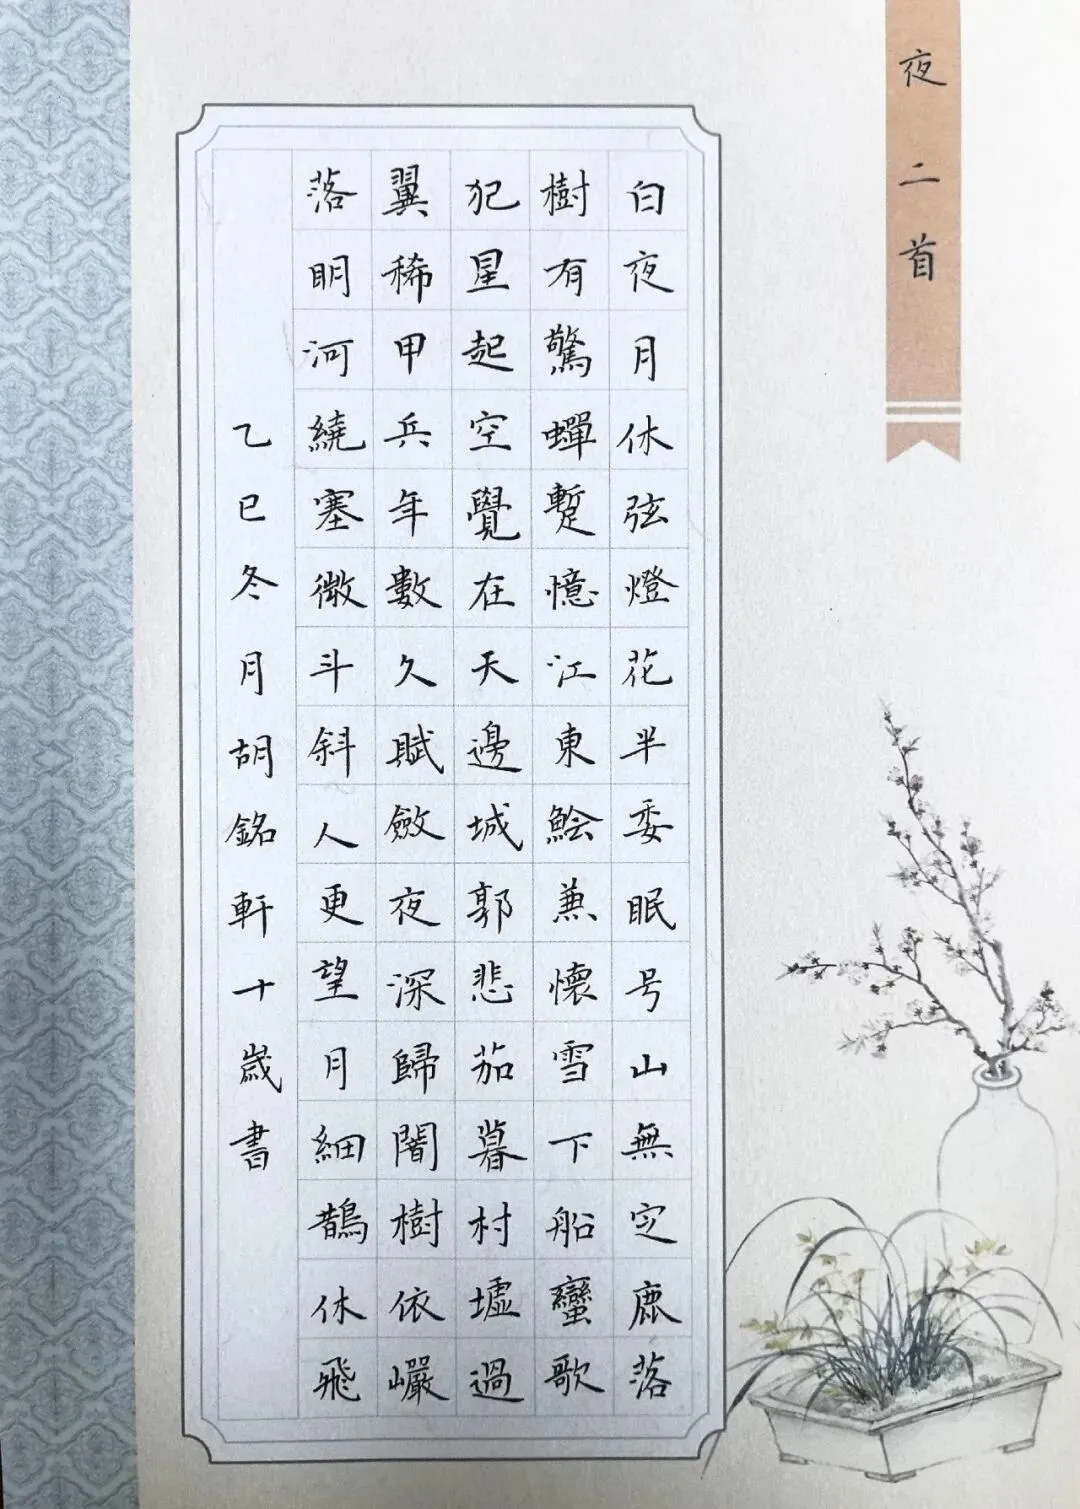 夜二首
白夜月休弦燈花半委眠号山無定鹿落
樹有驚蟬蹔憶江東鱠兼懷雪下船蠻歌
犯星起空覺在天邊城郭悲茄暮村墟過
翼稀甲兵年數久賦斂夜深歸闇樹依巖
落明河繞塞微斗斜人更望月細鵲休飛
乙巳冬月胡銘軒十歲書